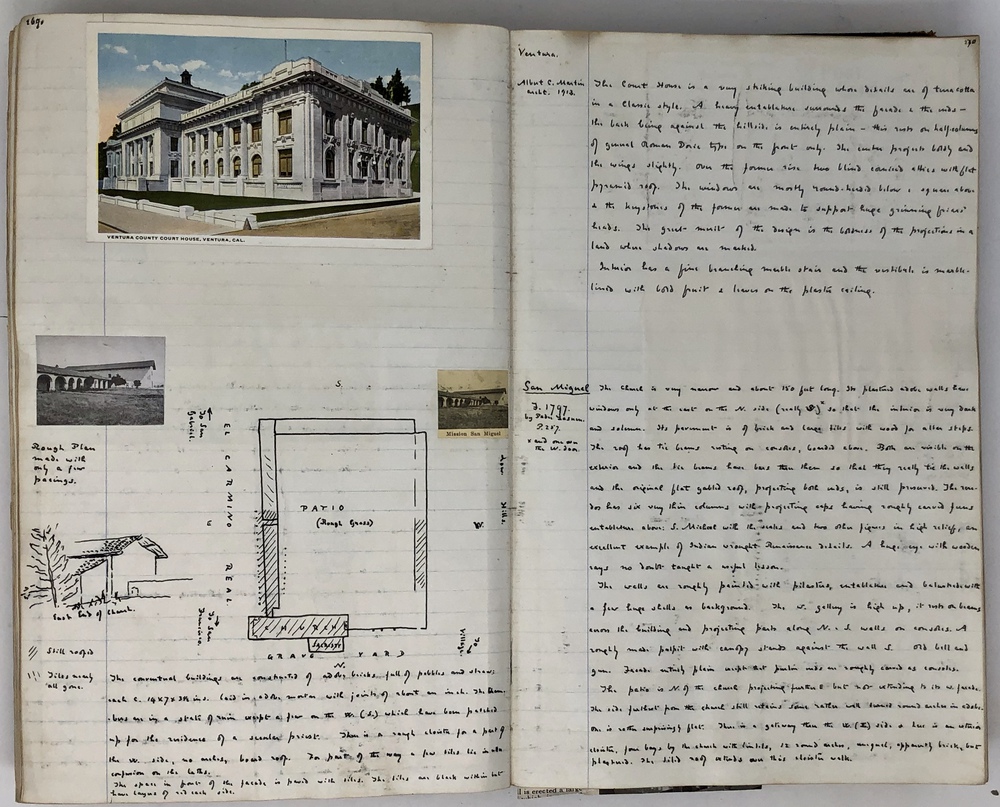 169.
VENTURA COUNTY COURT HOUSE, VENTURA, CAL.
S.
Mission San Miguel
Rough Plan
made with
only a few
pacings.
To San
Gabriel.
EL CAMINO REAL
E
PATIO
(Rough Grass)
W.
Low Hills.
East End of Church.
To San
Francisco.
SACRISTY
To
Village
GRAVE YARD
N.
Still roofed
Tiles nearly
all gone.
The conventual buildings are constructed of adobe bricks, full of pebbles and straws
each c. 14x7x3½ ins. laid in adobe mortar with joints of about an inch. The Rem-
-bers are in a state of ruin except a few on the W. (S.) which have been patched
up for the residence of a secular priest. There is a rough cloister for a part of
the W. side, no arches, board roof. For part of the way a few tiles lie in
confusion on the laths.
The space in front of the facade is paved with tiles. The tiles are black within but
have layers of red each side.
170
Ventura.
Albert C. Martin
archt. 1913.
The Court House is a very striking building whose details are of terracotta
in a Classic style. A heavy entablature surrounds the facade & the ends –
the back being against the hillside is entirely plain – this rests on half-columns
of general Roman Doric type on the front only. The center projects boldly and
the wings slightly. Over the former rise two blind corniced attics with flat
pyramid roof. The windows are mostly round-headed below & square above
& the keystones of the former are made to support huge grinning friars'
heads. The great merit of the design is the boldness of the projections in a
land where shadows are marked.
Interior has a fine branching marble stair and the vestibule is marble-
lined with bold fruit & leaves on the plaster ceiling.
San Miguel
F. 1797.
by Padre Lasuen.
P. 257.
x and one on
the W. door.
The church is very narrow and about 150 feet long. Its plastered adobe walls have
windows only at the east on the N. side (really S)x so that the interior is very dark
and solemn. Its pavement is of brick and large tiles with wood for altar steps.
The roof has tie beams resting on consoles, boarded above. Both are visible on the
exterior and the tie beams have bars thru them so that they really tie the walls
and the original flat gabled roof, projecting both ends, is still preserved. The rere-
dos has six very thin columns with projecting caps having roughly carved
entablature above: S. Michael with the scales and two other figures in high relief, an
excellent example of Indian wrought Renaissance details. A huge eye with wooden
rays no doubt taught a useful lesson.
The walls are roughly painted with pilasters, entablature and balustrade with
a few huge shells as background. The W. gallery is high up, it rests on beams
across the building and projecting parts along N. & S. walls on consoles. A
roughly made pulpit with canopy stands against the wall S. Old bell and
gun. Facade entirely plain except that purlin ends are roughly carved as consoles.
The patio is N. of the church projecting further E but not extending to its W. facade.
The side furthest from the church still retains some rather well turned round arches in adobe.
One is rather surprisingly flat. There is a gateway thru the W. (E) side & here is an exterior
cloister, four bays by the church with lintels, 12 round arches, unequal, apparently brick, but
plastered. The tiled roof extends over this cloister walk.
l is erected a large